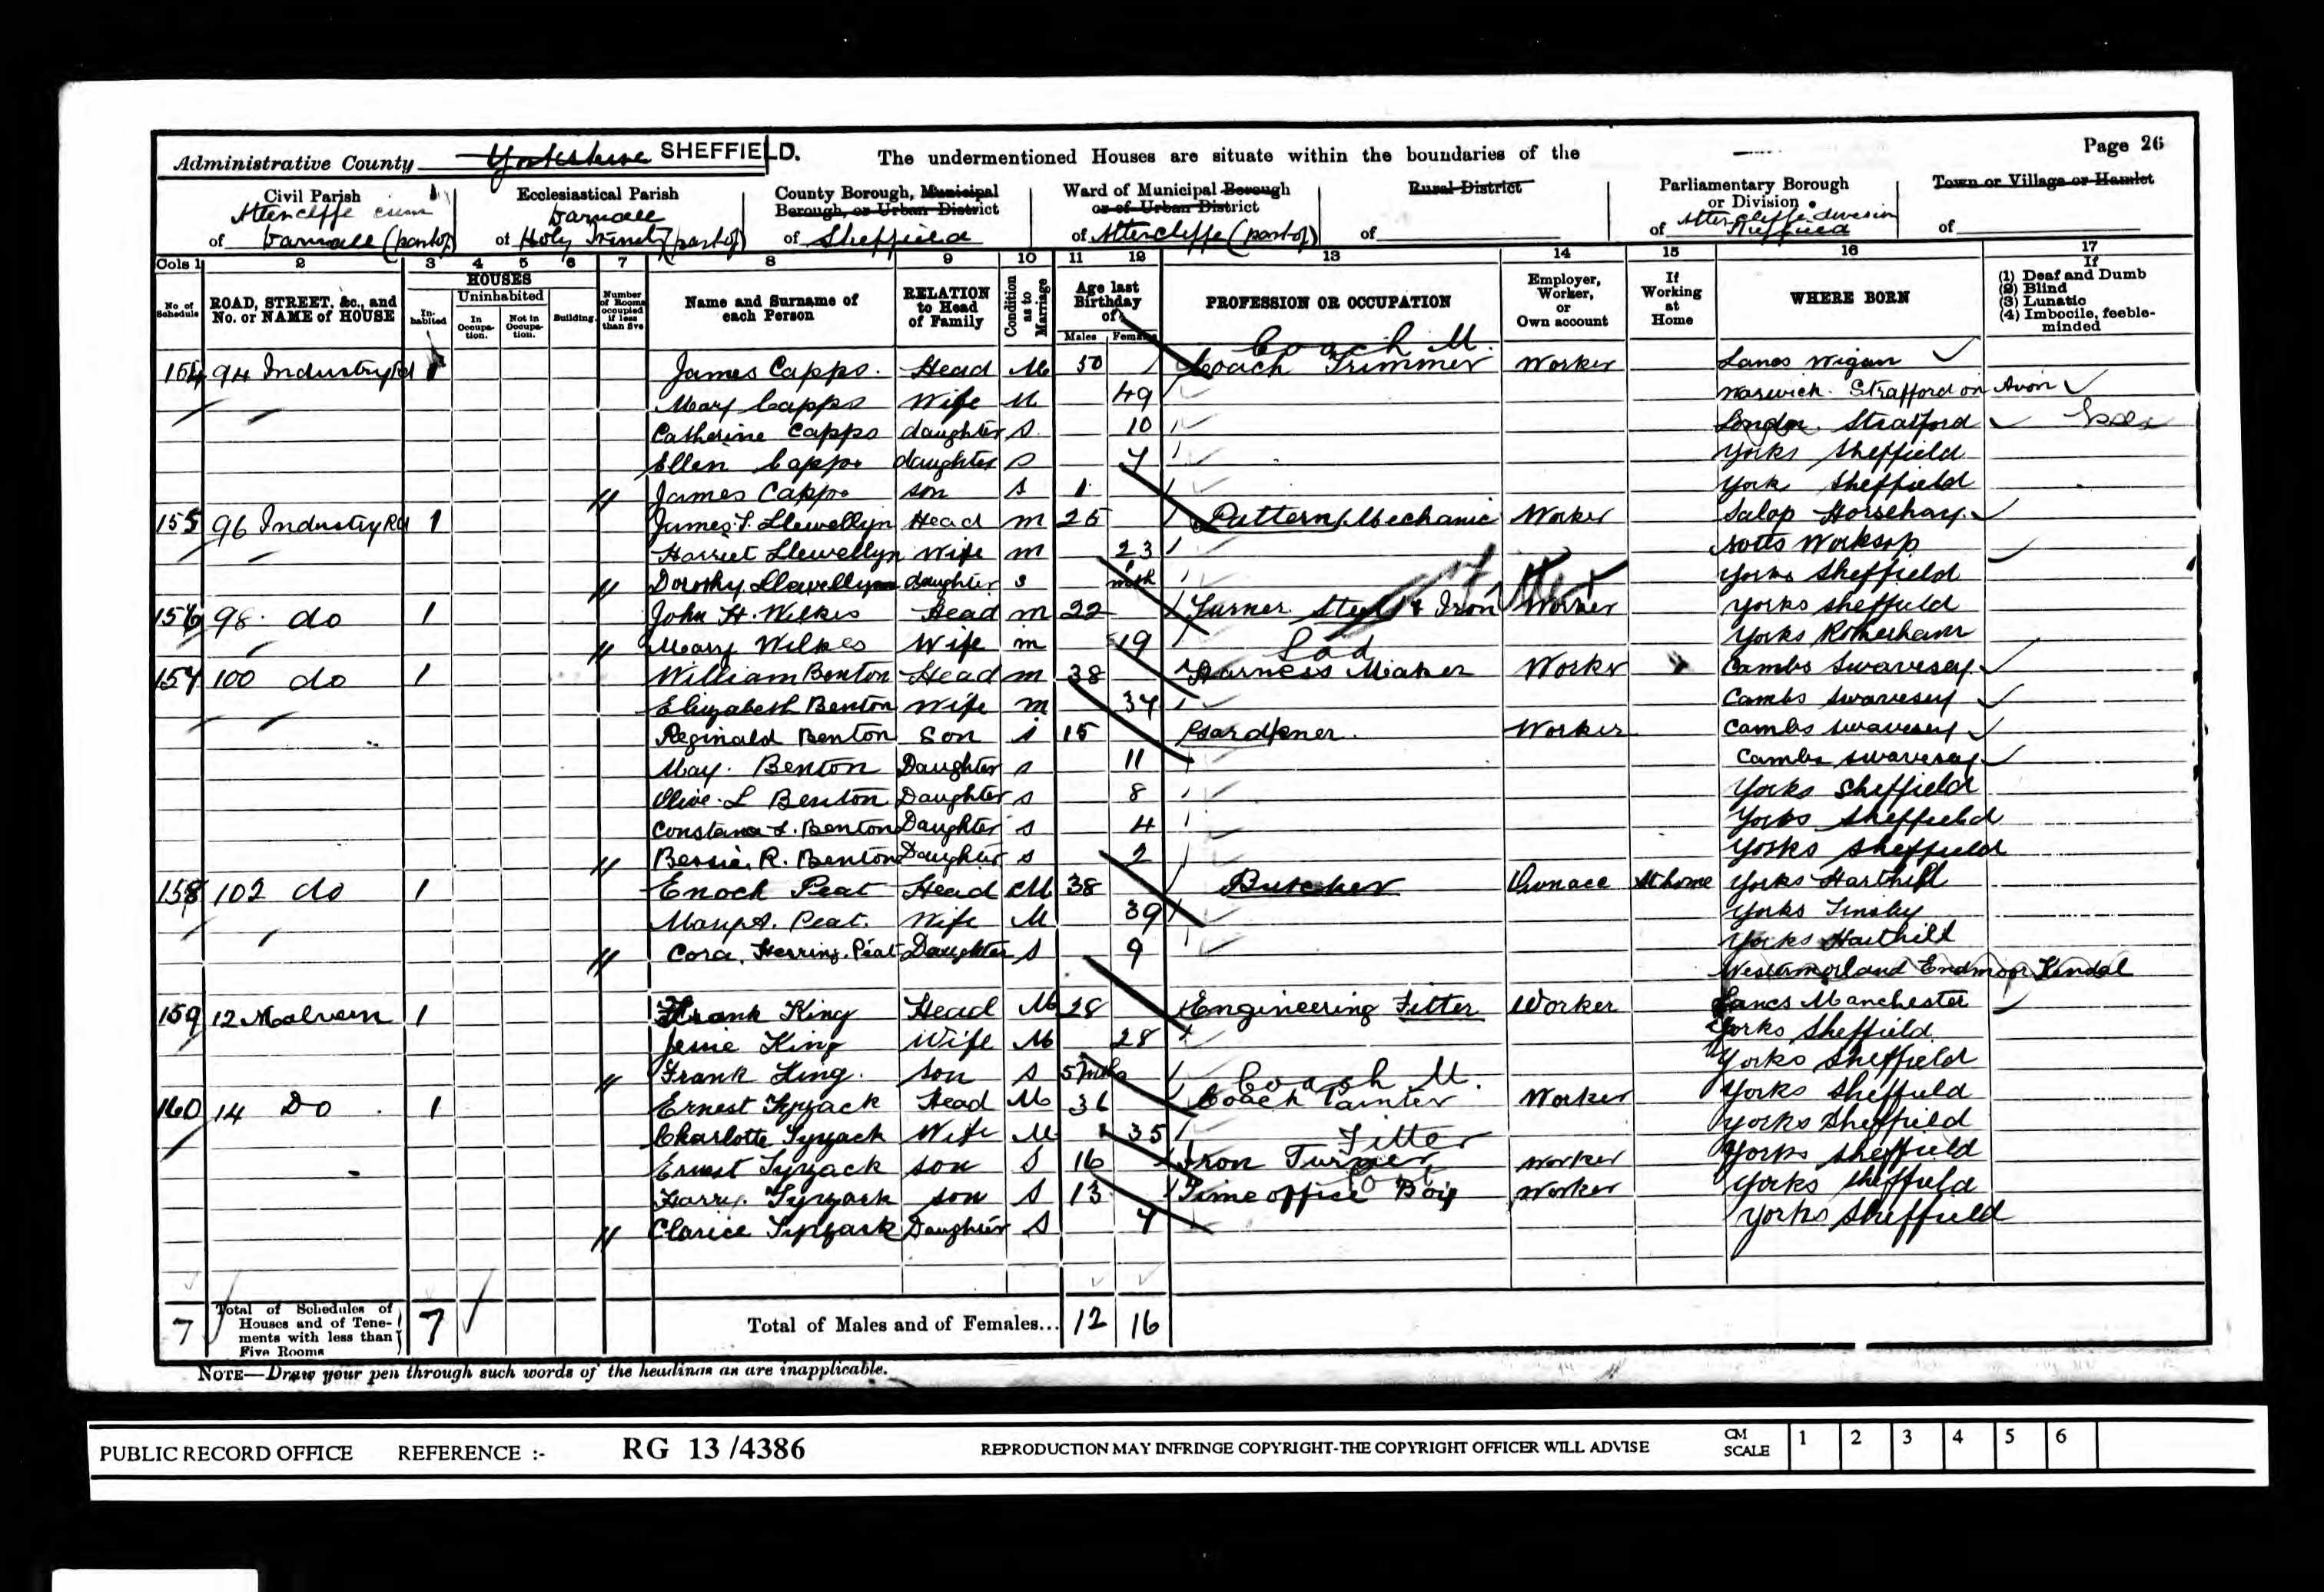 Page 26
Administrative County Yorkshire SHEFFIELD. The undermentioned Houses are situate within the boundaries of the
Civil Parish Ecclesiastical Parish County Borough, Municipal Borough, or Urban District Ward of Municipal Borough or of Urban District Rural District Parliamentary Borough or Division Town or Village or Hamlet
of Attercliffe cum Darnall (part of) of Darnall Holy Trinity (part of) of Sheffield of Attercliffe (part of) of of Attercliffe division Sheffield of
Cols 1 2 3 4 5 6 7 8 9 10 11 12 13 14 15 16 17
No. of Schedule ROAD, STREET, &c., and No. or NAME of HOUSE HOUSES Inhabited Uninhabited In Occupation. Not in Occupation. Building. Number of Rooms occupied if less than five Name and Surname of each Person RELATION to Head of Family Condition as to Marriage Age last Birthday of Males Females PROFESSION OR OCCUPATION Employer, Worker, or Own account If Working at Home WHERE BORN If (1) Deaf and Dumb (2) Blind (3) Lunatic (4) Imbecile, feeble-minded
Coach M.
154 94 Industry Rd 1 James Capps. Head M 50 Coach Trimmer Worker Lancs Wigan
Mary Capps Wife M 49 Warwick. Strafford on Avon
Catherine Capps daughter S. 10 London. Stratford
Ellen Capps daughter S 7 Yorks Sheffield
James Capps son S 1 York Sheffield
155 96 Industry Rd 1 James. Llewellyn Head m 25 Pattern Mechanic Worker Salop Horsehay.
Harriet Llewellyn Wife m 23 Notts Worksop
Dorothy Llewellyn daughter s 1 mth Yorks Sheffield
Fitter
156 98. do 1 John H. Wilkes Head m 22 Turner Steel & Iron Worker Yorks Sheffield
Mary Wilkes Wife m 19 Yorks Rotherham
Sad
157 100 do 1 William Benton Head m 38 Harness Maker Worker Cambs Swavesey.
Elizabeth Benton Wife m 37 Cambs Swavesey
Reginald Benton Son s 15 Gardener. Worker Cambs Swavesey
May. Benton Daughter s 11 Cambs Swavesey
Olive. L Benton Daughter s 8 Yorks Sheffield
Benton Daughter s 4 Yorks Sheffield
Bessie. R. Benton Daughter s 2 Yorks Sheffield
158 102 do 1 Enoch Peat Head M 38 Butcher Ownacc At home Yorks Harthill
Mary A. Peat. Wife M 39 Yorks Tinsley
Cora. Herring. Peat Daughter S 9 Yorks Harthill
Westermorland Endmoor Kendal
159 12 Malvern 1 Frank King Head M 28 Engineering Fitter Worker Lancs Manchester
Jessie King Wife M 28 Yorks Sheffield.
Frank King. son S 5 mths Yorks Sheffield
Coach M.
160 14 Do. 1 Ernest Tyzack Head M 36 Coach Painter Worker Yorks Sheffield
Charlotte Tyzack Wife M 35 Yorks Sheffield
Fitter
Ernest Tyzack son S 16 Iron Turner Worker Yorks Sheffield
Harry. Tyzack son S 13 Time office Boy Worker Yorks Sheffield
Clarice Tyzack Daughter S 7 Yorks Sheffield
7 Total of Schedules of Houses and of Tenements with less than Five Rooms 7 Total of Males and of Females... 12 16
NOTE—Draw your pen through such words of the headings as are inapplicable.
PUBLIC RECORD OFFICE REFERENCE :- RG 13 /4386 REPRODUCTION MAY INFRINGE COPYRIGHT-THE COPYRIGHT OFFICER WILL ADVISE CM SCALE 1 2 3 4 5 6